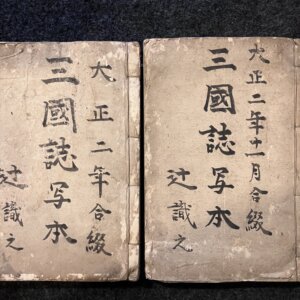 大正二年十一月合綴
三國誌写本
辻識之
大正二年合綴
三國誌写本
辻識之